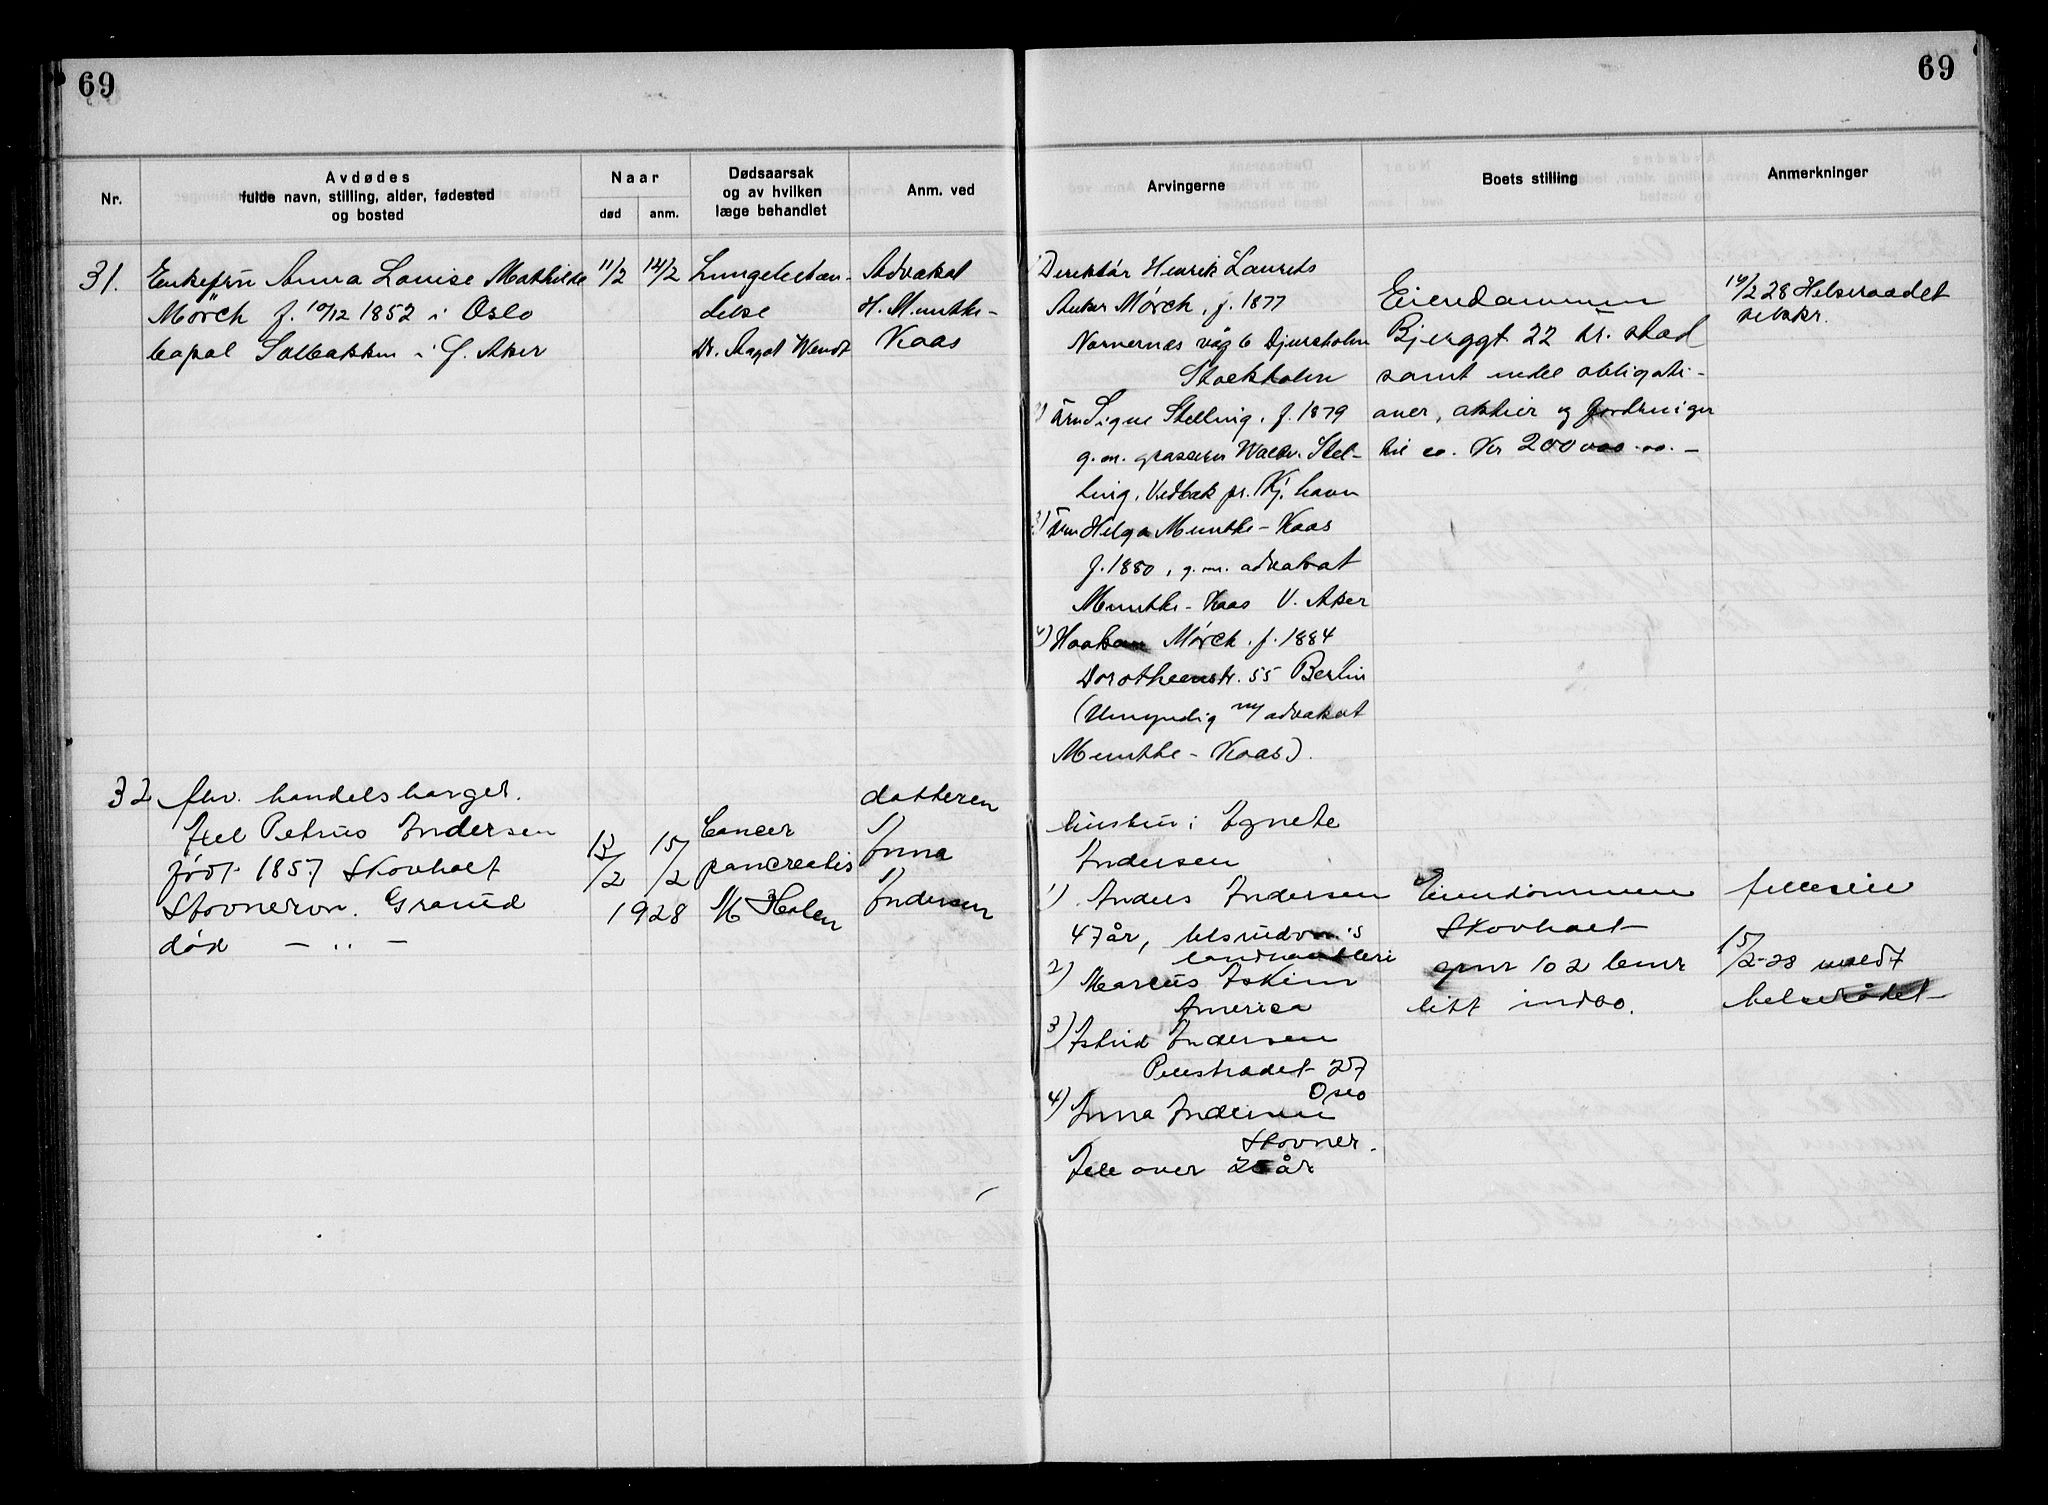 69
69
Nr.
Avdødes
fulde navn, stilling, alder, fødested
og bosted
Naar
død
anm.
Dødsaarsak
og av hvilken
læge behandlet
Anm. ved
Arvingerne
Boets stilling
Anmerkninger
31.
Enkefru Anna Louise Mathilde
Mörch f. 10/12 1852 i Oslo
bopæl Solbakken i Ø. Aker
11/2
14/2
Lungebetæn-
delse
Dr. Wendt
Advokat
H. Munthe-
Kaas
Direktør Henrik Laurits
Anker Mørch, f. 1877
Nornernas väg 6 Djursholm
Stockholm
2) Fru Signe Stelling, f. 1879
g.m. grosserer Stel-
ling, Vedbæk pr. Kj.havn
3) Fru Helga Munthe-Kaas
f. 1880, g.m. advokat
Munthe-Kaas V. Aker
4) Haakon Mørch. f. 1884
Dorotheenstr. 55 Berlin
(Umyndig v/ advokat
Munthe-Kaas).
Eiendommen
Bjerggt 22 Fr. stad
samt endel obligati-
oner, aktier og fordringer
til ca. Kr 200 000.00.-
14/2 28 Helseraadet
tilskr.
32
fhv. handelsborger.
Axel Petrus Andersen
født 1857 Skovholt
Stovnervn. Grorud
død - " -
13/2
15/2
1928
Cancer
pancreatis
M Holen
datteren
Anna
Andersen
hustru: Agnete
Andersen
1) Anders Andersen
47 år,
landhandleri
2) Marcus Askim
America
3) Astrid Andersen
Pilestrædet 27
Oslo
4) Anna Andersen
Stovner.
Alle over 25 år
Eiendommen
Skovholt
gnr 102 bnr
litt indbo.
felleseie
15/2-28 meldt
helserådet